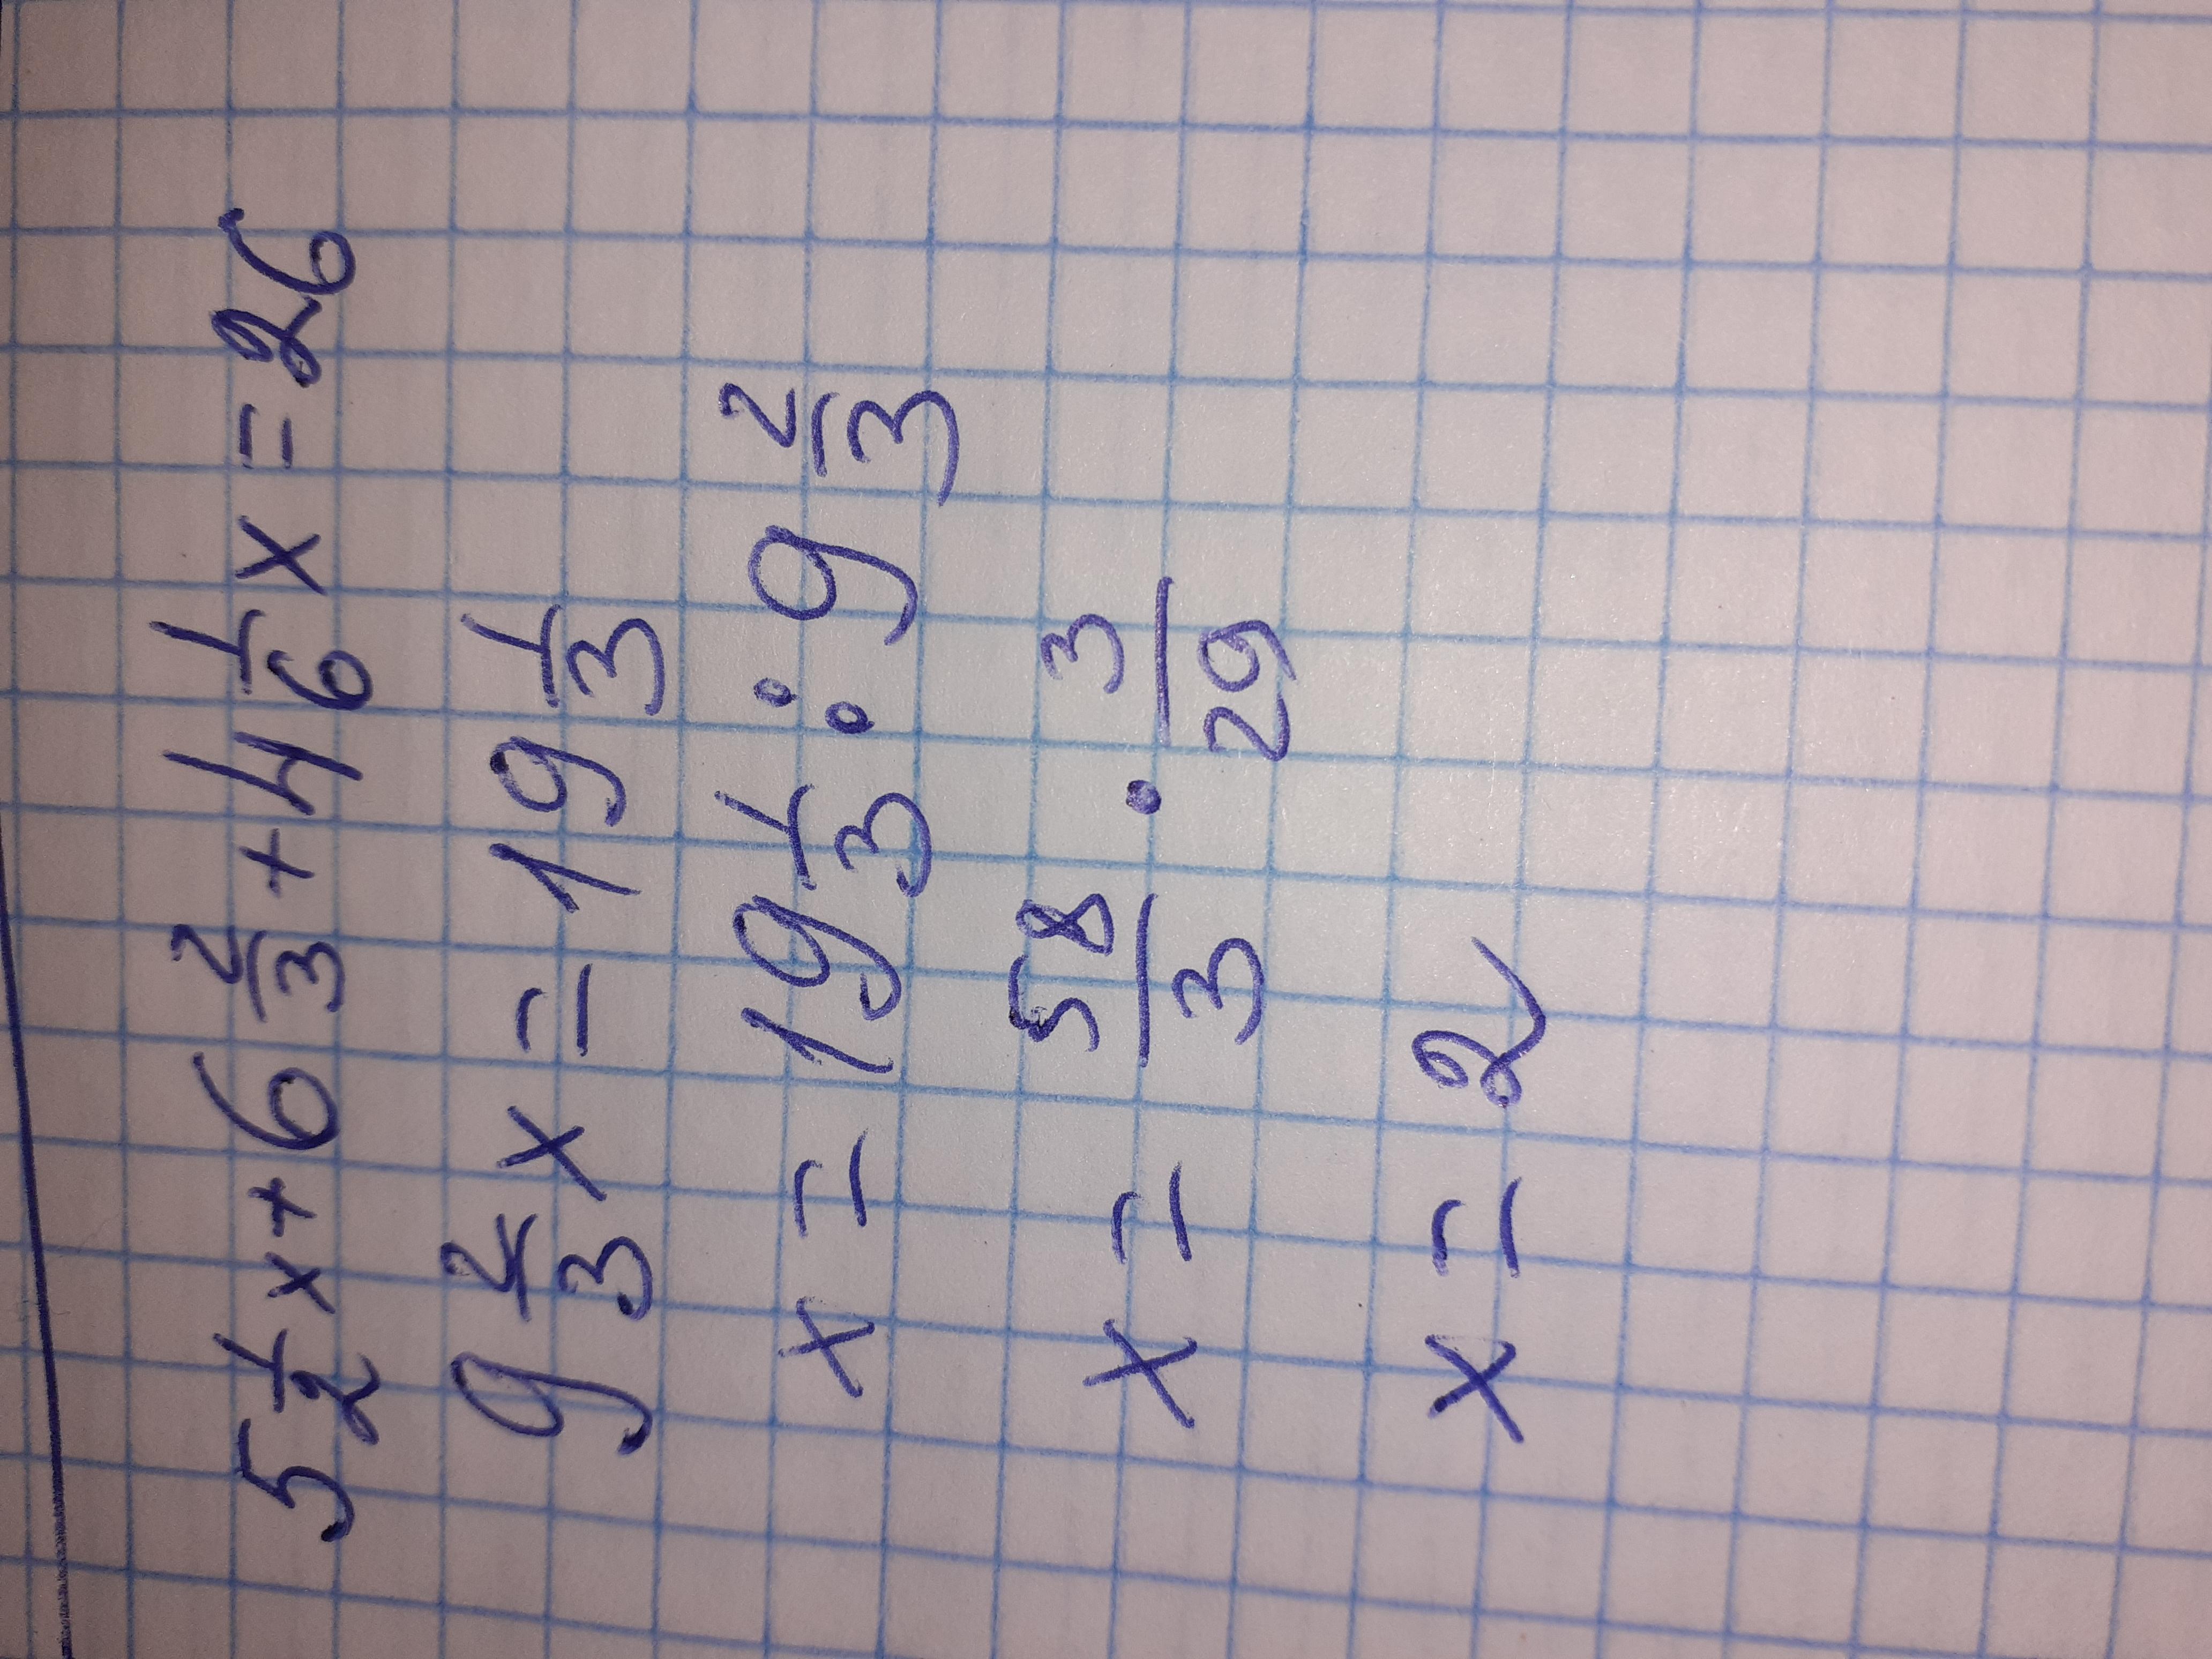 5 1/2 x + 6 2/3 + 4 1/6 x = 26
9 2/3 x = 19 1/3
x = 19 1/3 : 9 2/3
x = 58/3 · 3/29
x = 2